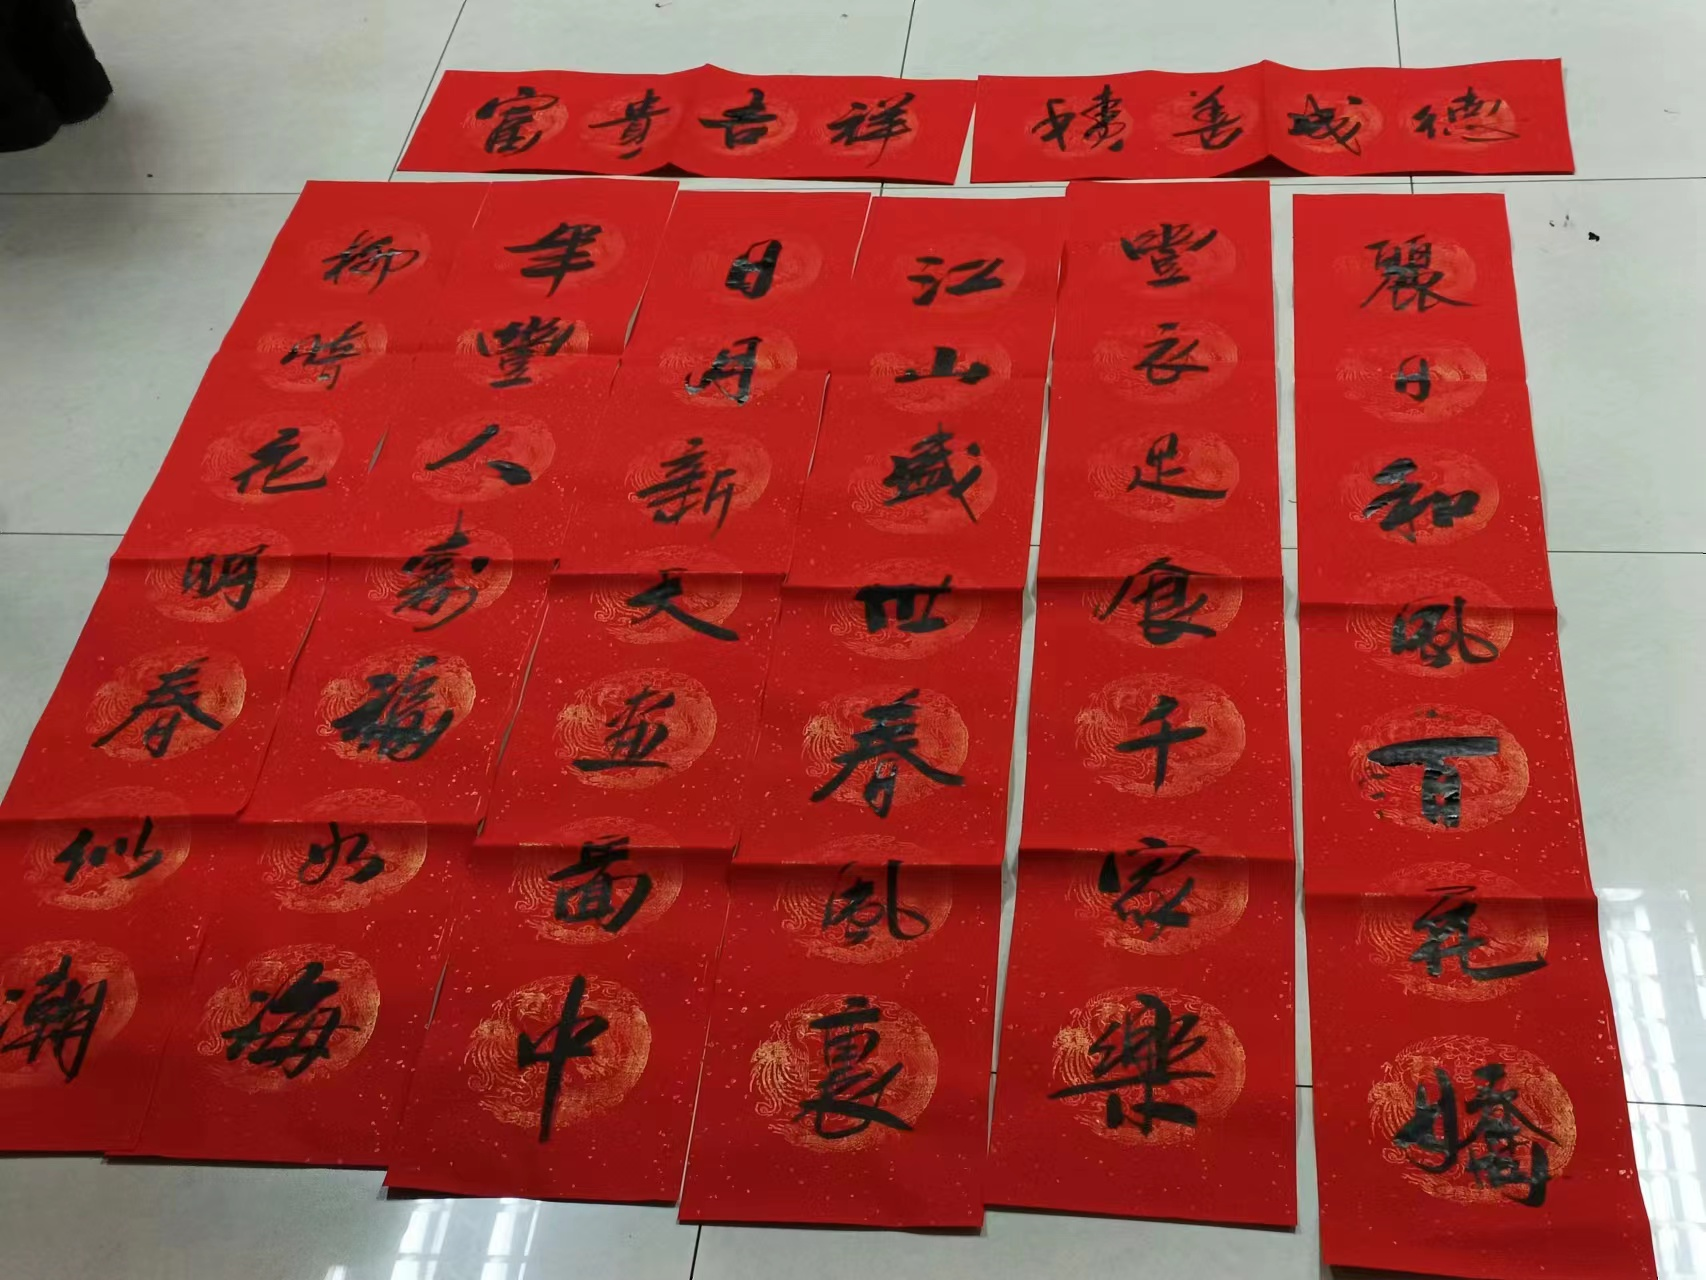 富貴吉祥
積善成德
柳暗花明春似潮
年豐人壽福如海
日月新天畫圖中
江山盛世春風裏
豐衣足食千家樂
麗日和風百花嬌